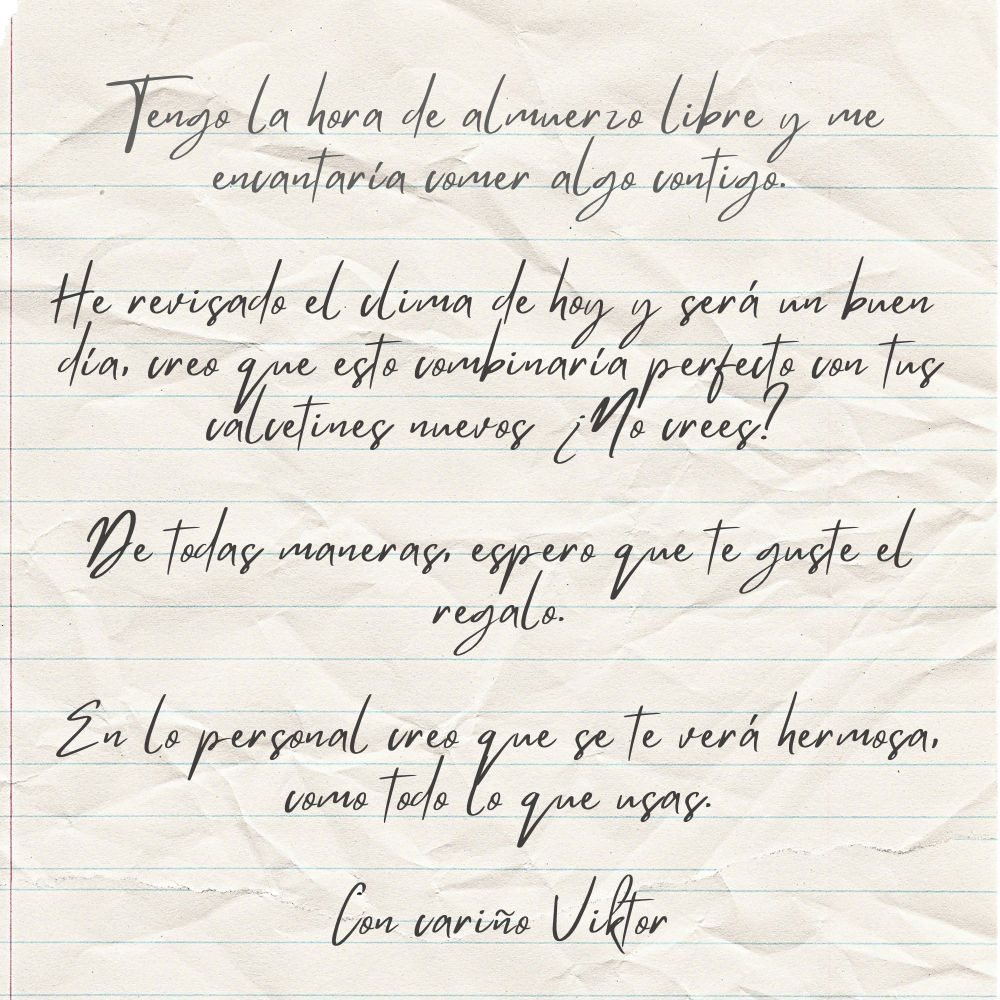 Tengo la hora de almuerzo libre y me
encantaría comer algo contigo.
He revisado el clima de hoy y será un buen
día, creo que esto combinaría perfecto con tus
calcetines nuevos ¿No crees?
De todas maneras, espero que te guste el
regalo.
En lo personal creo que se te verá hermosa,
como todo lo que usas.
Con cariño Viktor